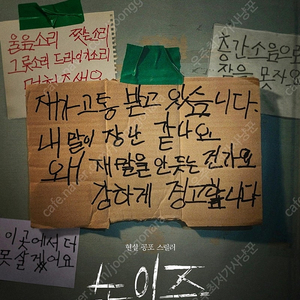 울음소리 짖는소리
그릇소리 드라이소리
층간소음으로
잠을 못자요
제가 고통 받고 있습니다.
내 말이 장난 같나요
왜 제말을 안듣는 건가요
강하게 경고합니다
이곳에서 더
못 살겠어요
현실 공포 스릴러
노이즈